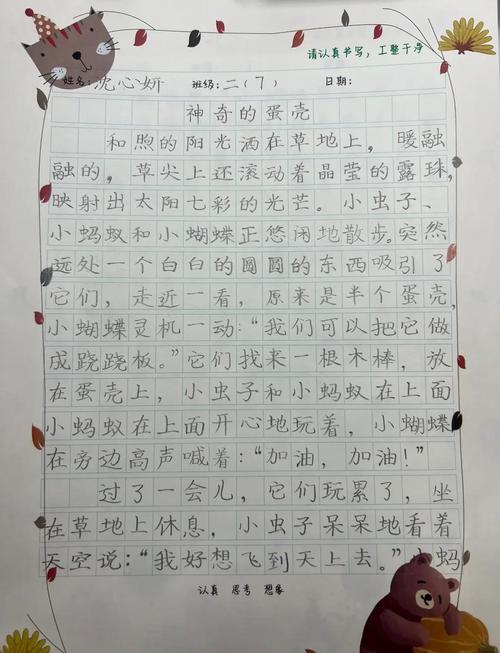 请认真书写，工整干净
姓名：沈心妍 班级：二（7） 日期：
神奇的蛋壳
和煦的阳光洒在草地上，暖融
融的，草尖上还滚动着晶莹的露珠，
映射出太阳七彩的光芒。小虫子、
小蚂蚁和小蝴蝶正悠闲地散步。突然
远处一个白白的圆圆的东西吸引了
它们，走近一看，原来是半个蛋壳，
小蝴蝶灵机一动：“我们可以把它做
成跷跷板。”它们找来一根木棒，放
在蛋壳上，小虫子和小蚂蚁在上面
小蚂蚁在上面开心地玩着，小蝴蝶
在旁边高声喊着：“加油，加油！”
过了一会儿，它们玩累了，坐
在草地上休息，小虫子呆呆地看着
天空说：“我好想飞到天上去。”小蚂
认真 思考 想象